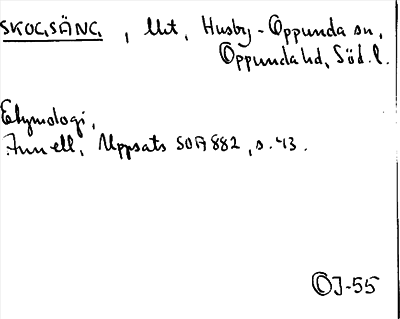 SKOGSÄNG, Utt, Husby-Oppunda sn,
Oppunda hd, Söd.l.
Etymologi,
Funell, Uppsats SOFI 882, s. 43.
OJ-55